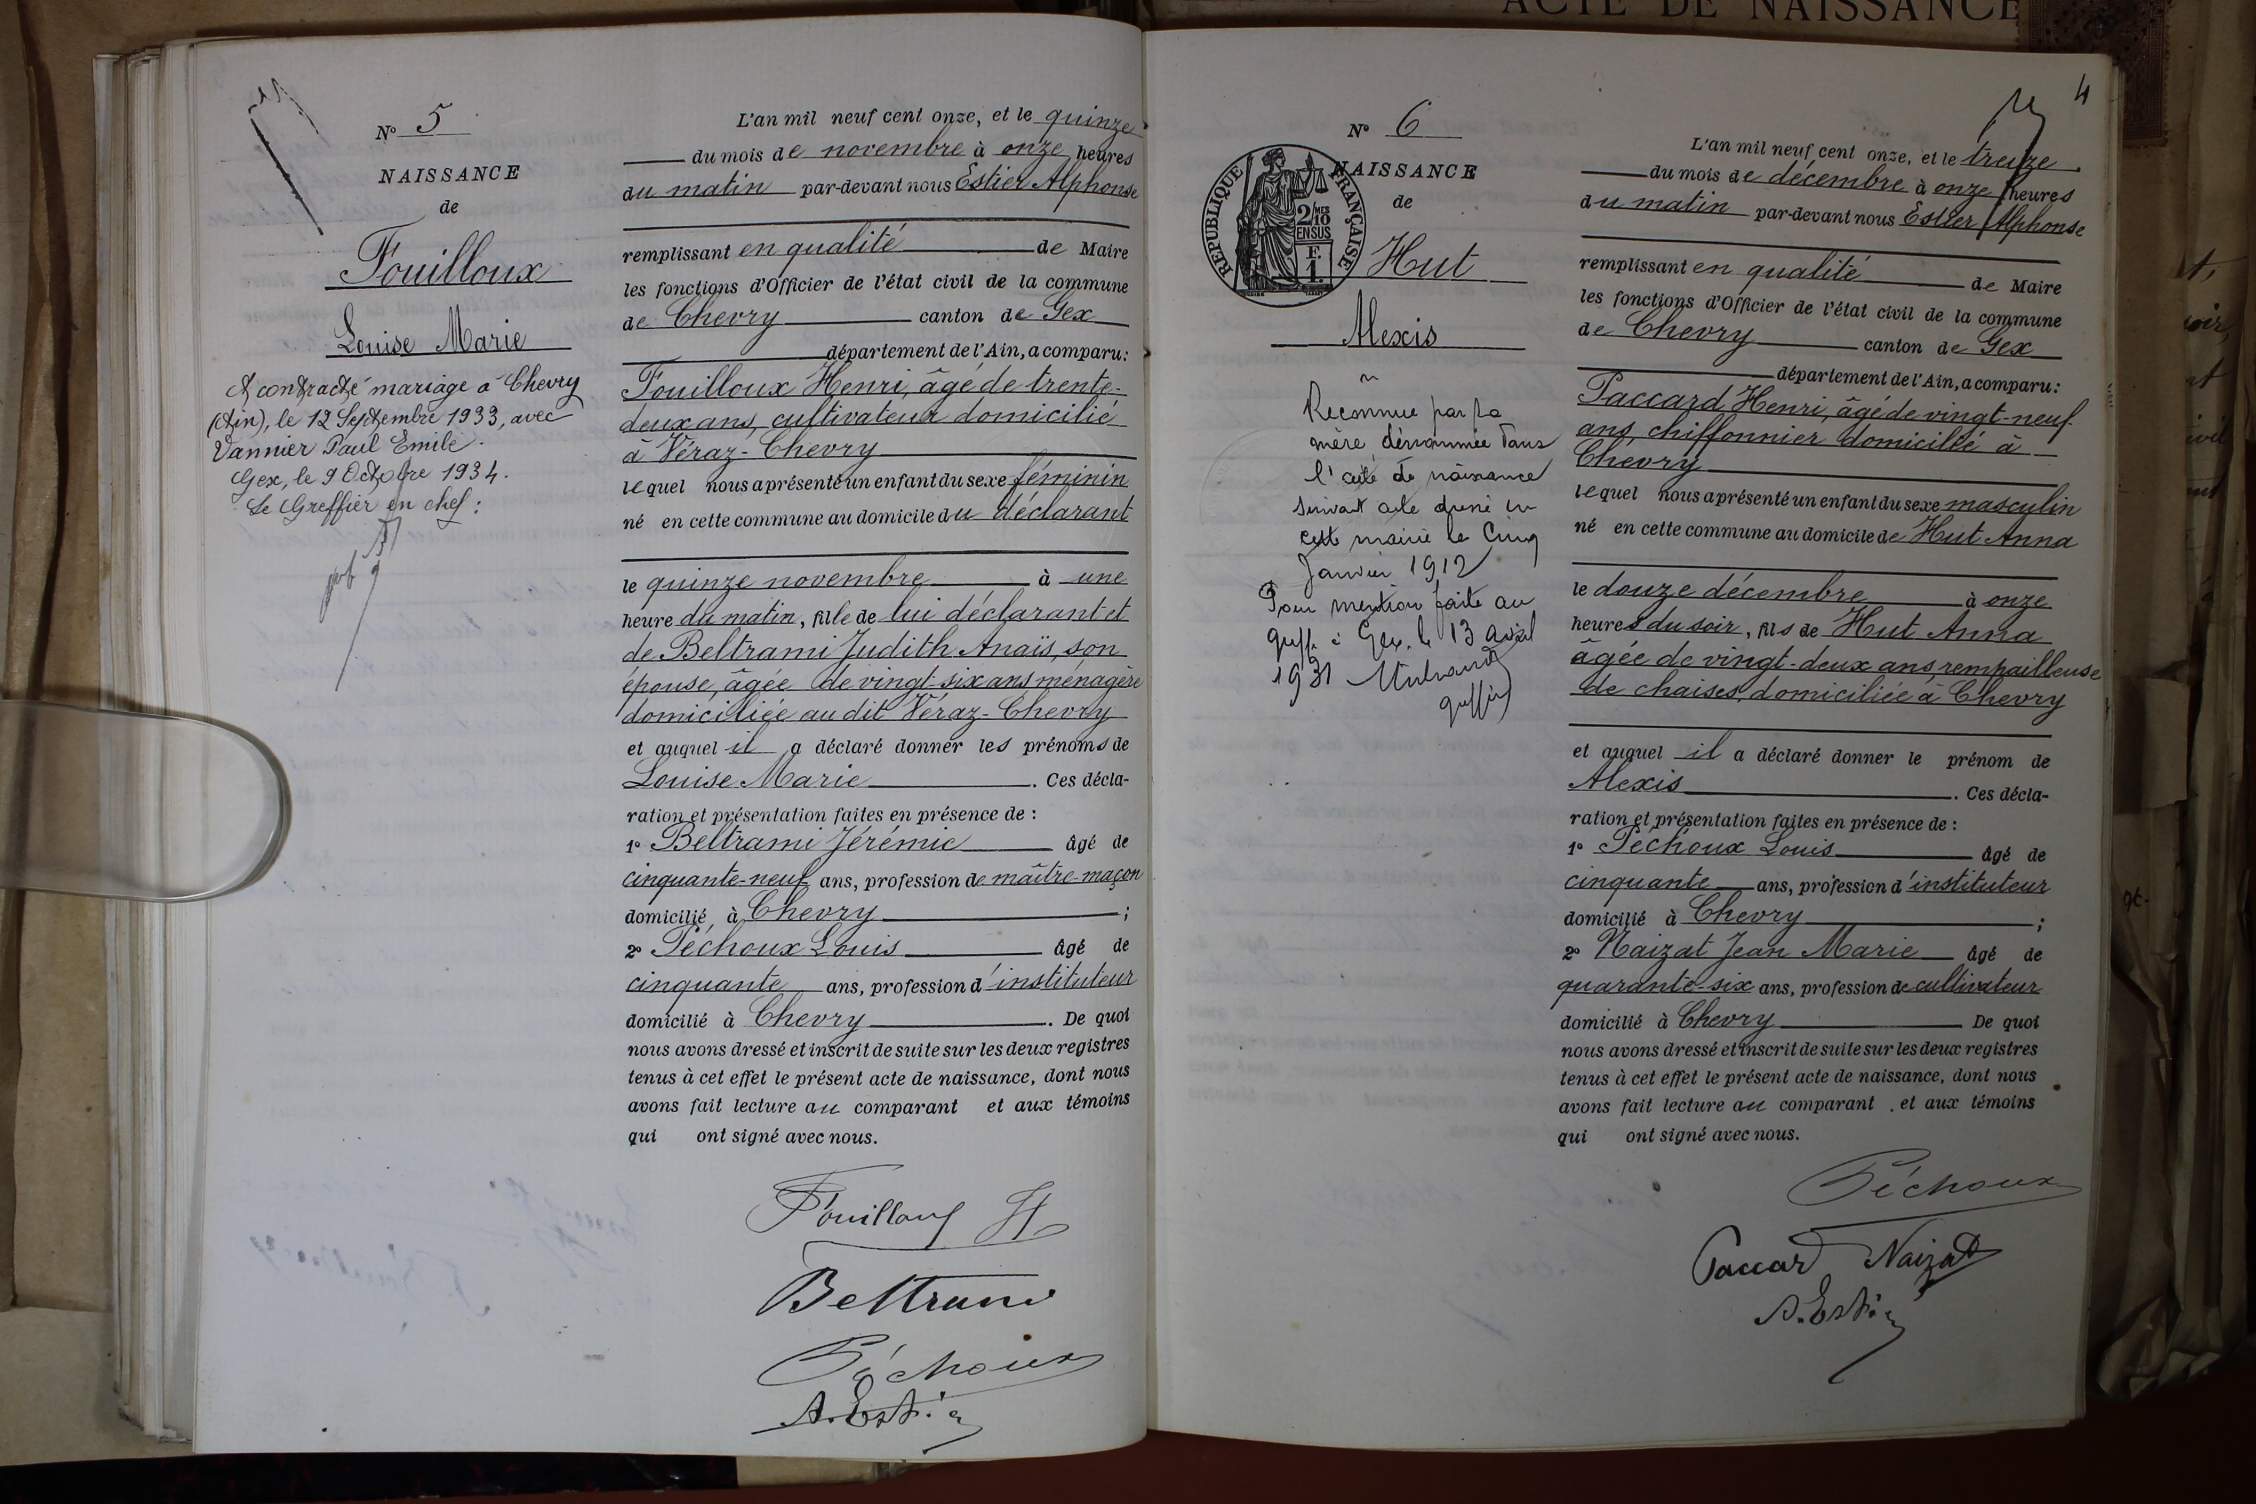 ACTE DE NAISSANCE
N° 5
NAISSANCE
de
Fouilloux
Louise Marie
A contracté mariage à Chevry
(Ain), le 12 Septembre 1933, avec
Vannier Paul Emile.
Gex, le 9 Octobre 1934.
Le Greffier en chef :
L'an mil neuf cent onze, et le quinze
du mois de novembre à onze heures
du matin par-devant nous Estier Alphonse
remplissant en qualité de Maire
les fonctions d'Officier de l'état civil de la commune
de Chevry canton de Gex
département de l'Ain, a comparu :
Fouilloux Henri, âgé de trente-
deux ans, cultivateur domicilié
à Véraz-Chevry
lequel nous a présenté un enfant du sexe féminin
né en cette commune au domicile du déclarant
le quinze novembre à une
heure du matin, fille de lui déclarant et
de Beltrami Judith Anaïs, son
épouse, âgée de vingt-six ans ménagère
domiciliée au dit Véraz-Chevry
et auquel il a déclaré donner les prénoms de
Louise Marie . Ces décla-
ration et présentation faites en présence de :
1° Beltrami Jérémie âgé de
cinquante-neuf ans, profession de maître-maçon
domicilié à Chevry ;
2° Péchoux Louis âgé de
cinquante ans, profession d'instituteur
domicilié à Chevry . De quoi
nous avons dressé et inscrit de suite sur les deux registres
tenus à cet effet le présent acte de naissance, dont nous
avons fait lecture au comparant et aux témoins
qui ont signé avec nous.
Fouilloux H
Beltrami
Péchoux
A. Estier
4
N° 6
NAISSANCE
de
RÉPUBLIQUE FRANÇAISE
2/10 MES
EN SUS
F.
1
Hut
Alexis
Reconnue par la
mère dénommée dans
l'acte de naissance
suivant acte dressé en
cette mairie le Cinq
Janvier 1912
Pour mention faite au
greffe à Gex, le 13 avril
1931
greffier
L'an mil neuf cent onze, et le treize
du mois de décembre à onze heures
du matin par-devant nous Estier Alphonse
remplissant en qualité de Maire
les fonctions d'Officier de l'état civil de la commune
de Chevry canton de Gex
département de l'Ain, a comparu :
Paccard Henri, âgé de vingt-neuf
ans, chiffonnier domicilié à
Chevry
lequel nous a présenté un enfant du sexe masculin
né en cette commune au domicile de Hut Anna
le douze décembre à onze
heures du soir, fils de Hut Anna
âgée de vingt-deux ans, rempailleuse
de chaises, domiciliée à Chevry
et auquel il a déclaré donner le prénom de
Alexis . Ces décla-
ration et présentation faites en présence de :
1° Péchoux Louis âgé de
cinquante ans, profession d'instituteur
domicilié à Chevry ;
2° Naizat Jean Marie âgé de
quarante-six ans, profession de cultivateur
domicilié à Chevry De quoi
nous avons dressé et inscrit de suite sur les deux registres
tenus à cet effet le présent acte de naissance, dont nous
avons fait lecture au comparant . et aux témoins
qui ont signé avec nous.
Péchoux
Paccard Naizat
A. Estier